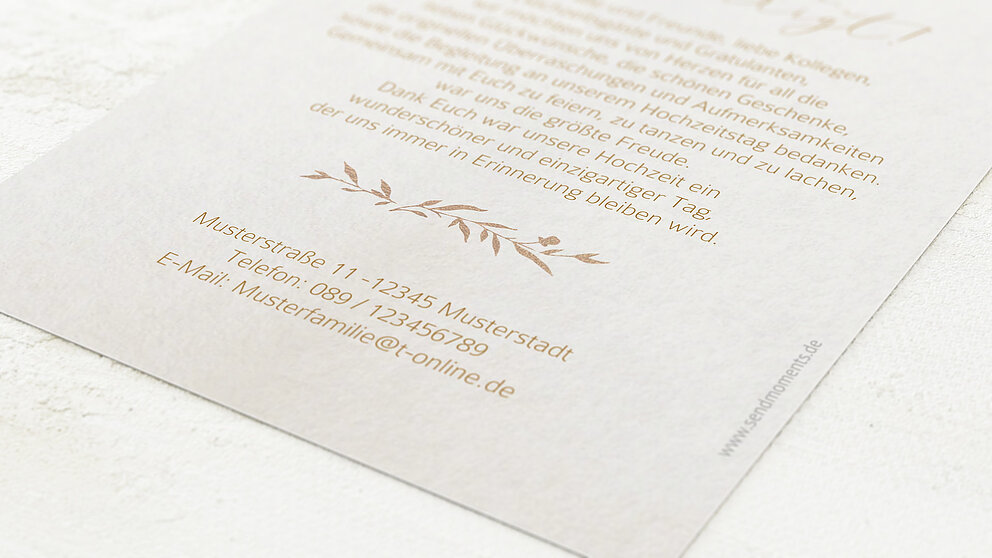 und Freunde, liebe Kollegen,
und Gratulanten,
wir möchten uns von Herzen für all die
Glückwünsche, die schönen Geschenke,
originellen Überraschungen und Aufmerksamkeiten
sowie die Begleitung an unserem Hochzeitstag bedanken.
Gemeinsam mit Euch zu feiern, zu tanzen und zu lachen,
war uns die größte Freude.
Dank Euch war unsere Hochzeit ein
wunderschöner und einzigartiger Tag,
der uns immer in Erinnerung bleiben wird.
Musterstraße 11 -12345 Musterstadt
Telefon: 089 / 123456789
E-Mail: Musterfamilie@t-online.de
www.sendmoments.de